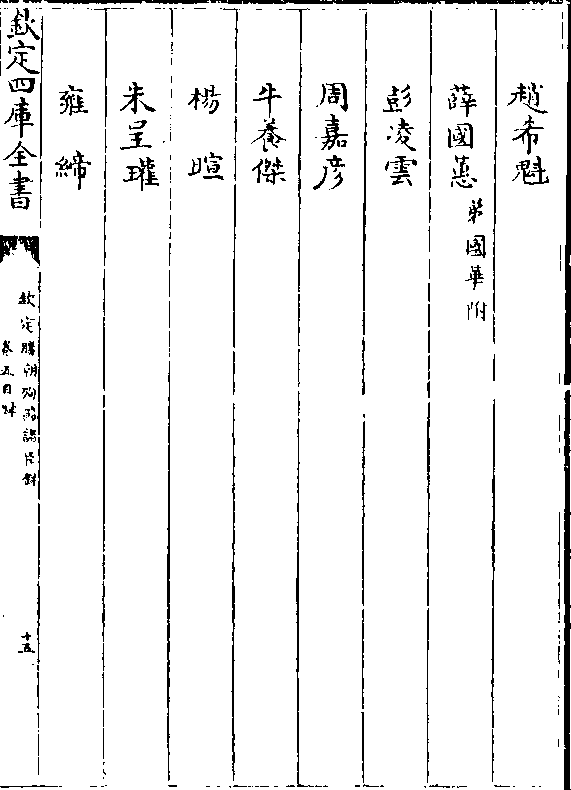 趙希魁
薛國蕙弟國華附
彭凌雲
周嘉彦
牛養傑
楊暄
朱呈㻿
雍締
欽定四庫全書
欽定勝朝殉節諸臣録
卷五目錄
十五